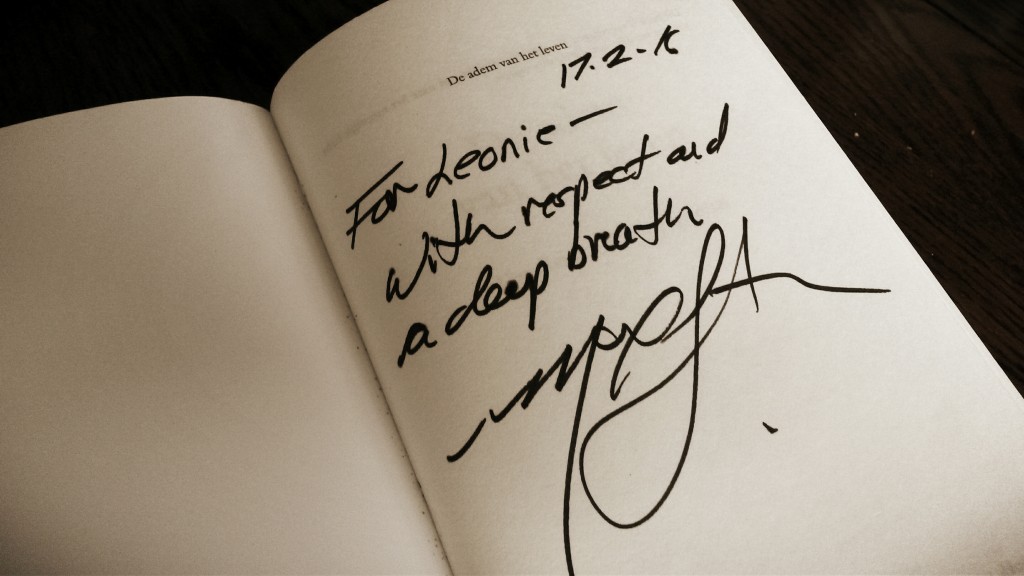 De adem van het leven
17.2-15
For Leonie —
with respect and
a deep breath